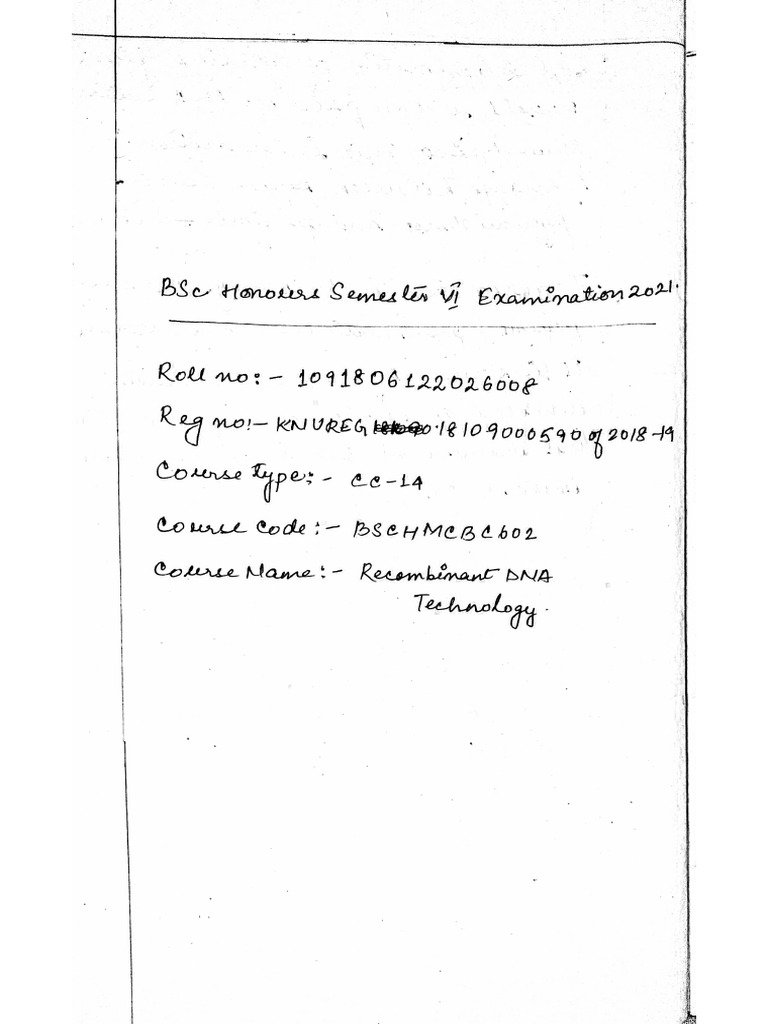 BSc Honours Semester VI Examination 2021.
Roll no:- 1091806122026008
Reg no:- KNUREG 018109000590 of 2018-19
Course Type:- CC-14
Course Code:- BSCHMCBC602
Course Name:- Recombinant DNA
Technology.